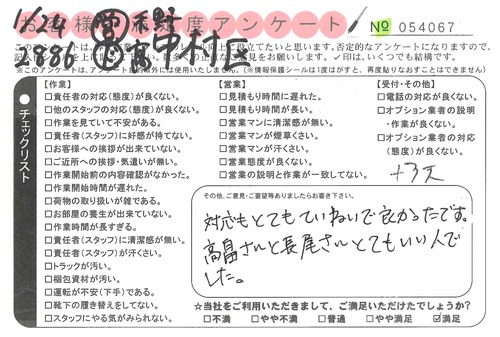 1/24
2886
中村区
お客様満足度アンケート
№ 054067
役立てたいと思います。否定的なアンケートになりますので、
✓印は、いくつでも結構です。
※このアンケートは、
使用いたしません。(※情報保護シールは1度はがすと、再度貼りなおすことはできません)
チェックリスト
【作業】
□責任者の対応(態度)が良くない。
□他のスタッフの対応(態度)が良くない。
□作業を見ていて不安がある。
□責任者(スタッフ)に好感が持てない。
□お客様への挨拶が出来ていない。
□ご近所への挨拶・気遣いが無い。
□作業開始前の内容確認がなかった。
□作業開始時間が遅れた。
□荷物の取り扱いが雑である。
□お部屋の養生が出来ていない。
□作業時間が長すぎる。
□責任者(スタッフ)に清潔感が無い。
□責任者(スタッフ)が汗くさい。
□トラックが汚い。
□梱包資材が汚い。
□運転が不安(下手)である。
□靴下の履き替えをしてない。
□スタッフにやる気がみられない。
【営業】
□見積もり時間に遅れた。
□見積もり時間が長い。
□営業マンに清潔感が無い。
□営業マンが煙草くさい。
□営業マンが汗くさい。
□営業態度が良くない。
□営業の説明と作業が一致してない。
【受付・その他】
□電話の対応が良くない。
□オプション業者の説明
・作業が良くない。
□オプション業者の対応
(態度)が良くない。
その他、ご意見・ご要望等ありましたらお書き下さい。
対応もとてもていねいで良かったです。
高畠さんと長尾さんとてもいい人で
した。
☆当社をご利用いただきまして、ご満足いただけたでしょうか?
□不満 □やや不満 □普通 □やや満足 ☑満足